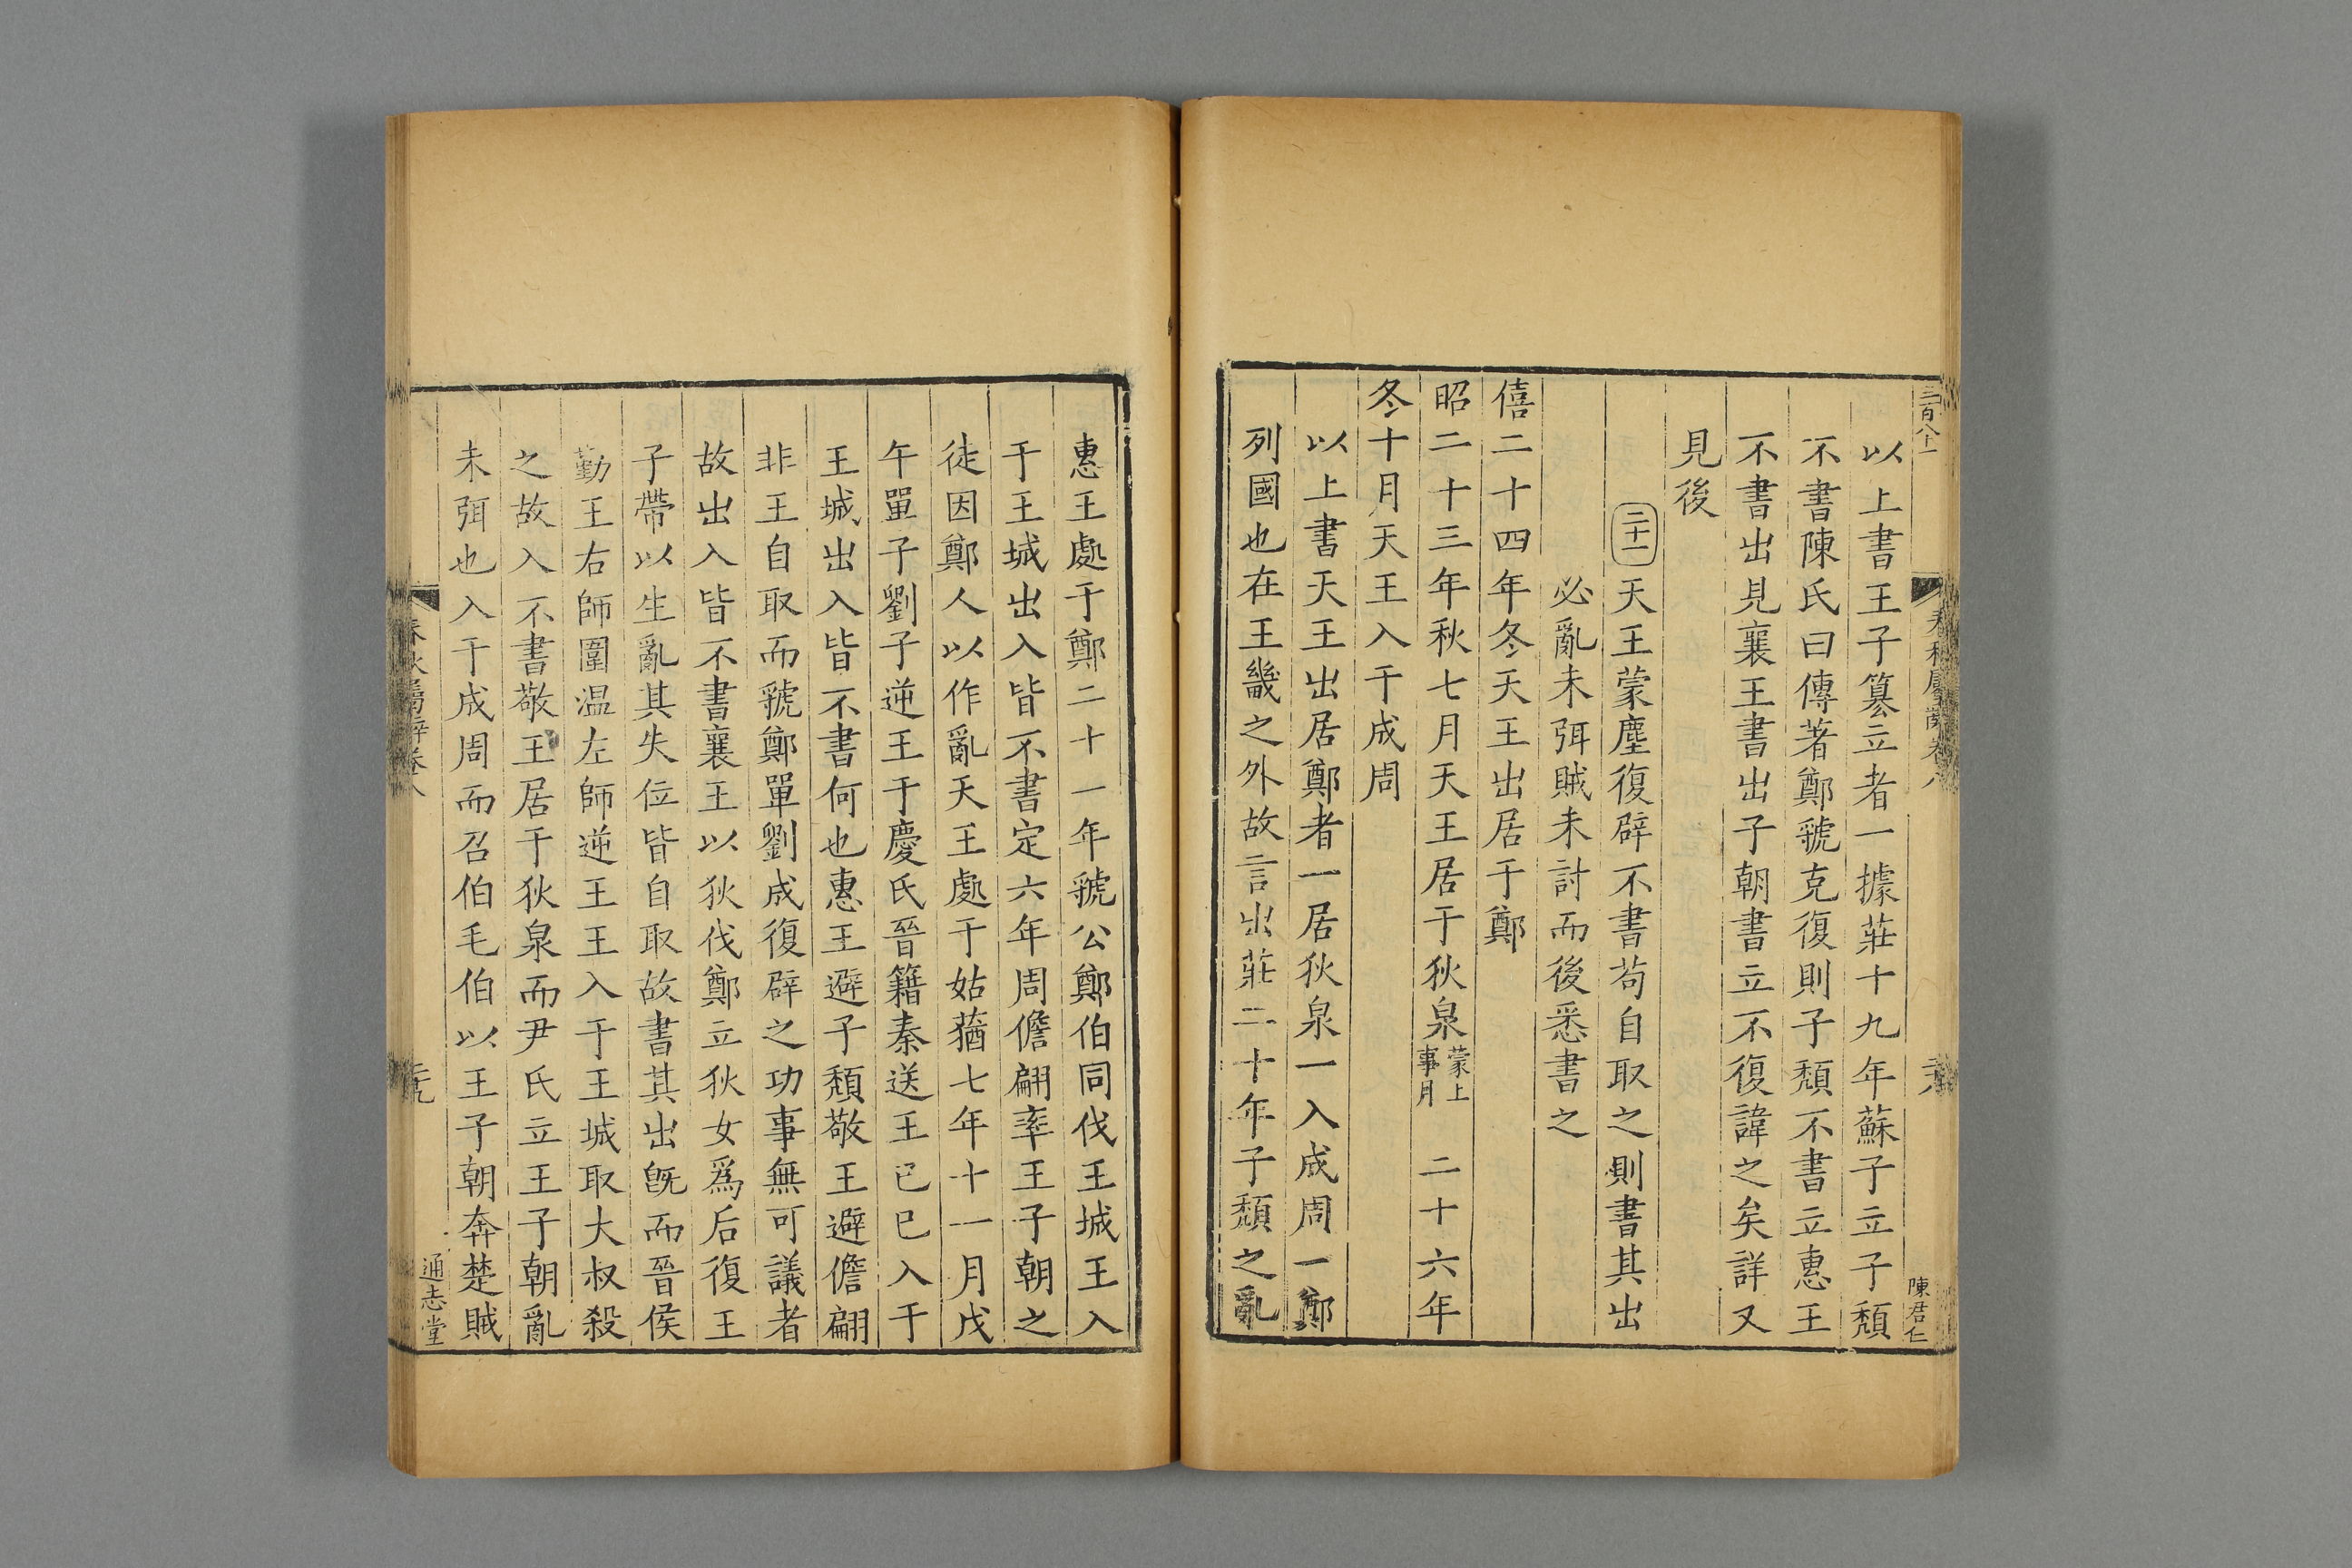 以上書王子簒立者一據莊十九年蘇子立子頹
不書陳氏曰傳著鄭虢克復則子頹不書立惠王
不書出見襄王書出子朝書立不復諱之矣詳又
見後
二十一天王蒙塵復辟不書苟自取之則書其出
必亂未弭賊未討而後悉書之
僖二十四年冬天王出居于鄭
昭二十三年秋七月天王居于狄泉蒙上事月 二十六年
冬十月天王入于成周
以上書天王出居鄭者一居狄泉一入成周一鄭
列國也在王畿之外故言出莊二十年子頹之亂
陳君仁
惠王處于鄭二十一年虢公鄭伯同伐王城王入
于王城出入皆不書定六年周儋翩率王子朝之
徒因鄭人以作亂天王處于姑蕕七年十一月戊
午單子劉子逆王于慶氏晉籍秦送王已巳入于
王城出入皆不書何也惠王避子頹敬王避儋翩
非王自取而虢鄭單劉成復辟之功事無可議者
故出入皆不書襄王以狄伐鄭立狄女爲后復王
子帶以生亂其失位皆自取故書其出旣而晉侯
勤王右師圍温左師逆王王入于王城取大叔殺
之故入不書敬王居于狄泉而尹氏立王子朝亂
未弭也入于成周而召伯毛伯以王子朝奔楚賊
春秋屬辭卷八
通志堂